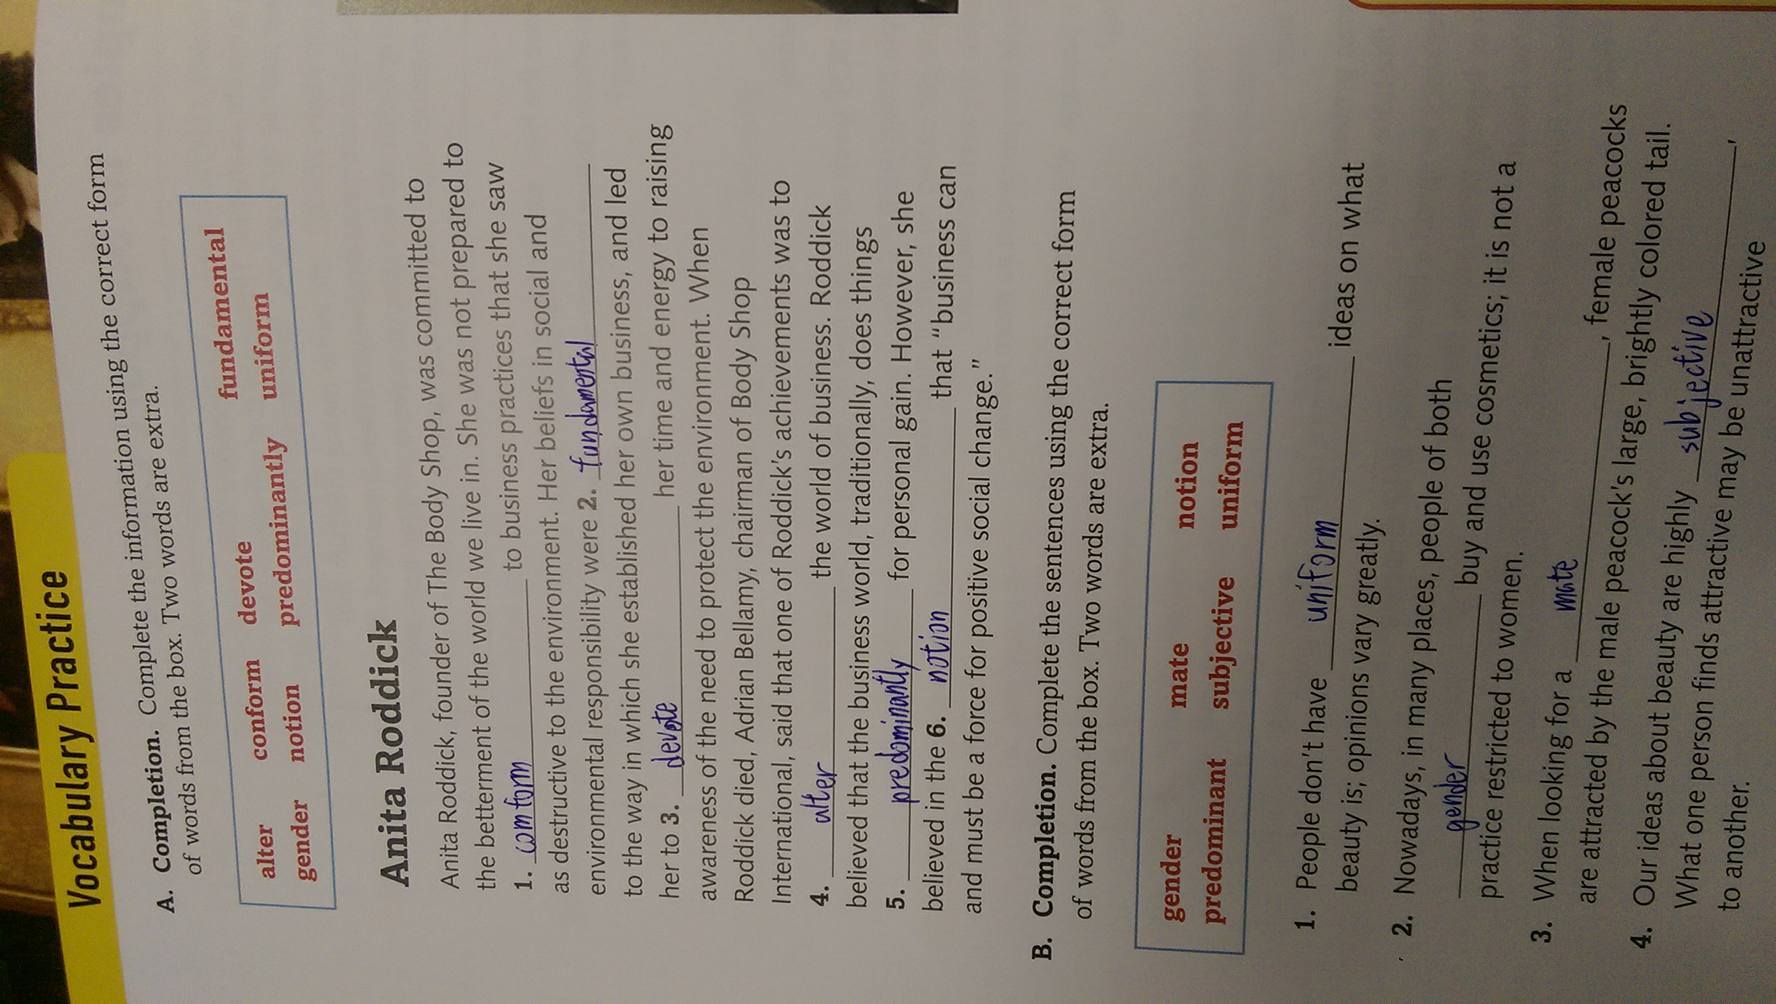 Vocabulary Practice
A. Completion. Complete the information using the correct form
of words from the box. Two words are extra.
alter conform devote fundamental
gender notion predominantly uniform
Anita Roddick
Anita Roddick, founder of The Body Shop, was committed to
the betterment of the world we live in. She was not prepared to
1. comform to business practices that she saw
as destructive to the environment. Her beliefs in social and
environmental responsibility were 2. fundamental
to the way in which she established her own business, and led
her to 3. devote her time and energy to raising
awareness of the need to protect the environment. When
Roddick died, Adrian Bellamy, chairman of Body Shop
International, said that one of Roddick's achievements was to
4. alter the world of business. Roddick
believed that the business world, traditionally, does things
5. predominantly for personal gain. However, she
believed in the 6. notion that "business can
and must be a force for positive social change."
B. Completion. Complete the sentences using the correct form
of words from the box. Two words are extra.
gender mate notion
predominant subjective uniform
1. People don't have uniform ideas on what
beauty is; opinions vary greatly.
2. Nowadays, in many places, people of both
gender buy and use cosmetics; it is not a
practice restricted to women.
3. When looking for a mate, female peacocks
are attracted by the male peacock's large, brightly colored tail.
4. Our ideas about beauty are highly subjective,
What one person finds attractive may be unattractive
to another.